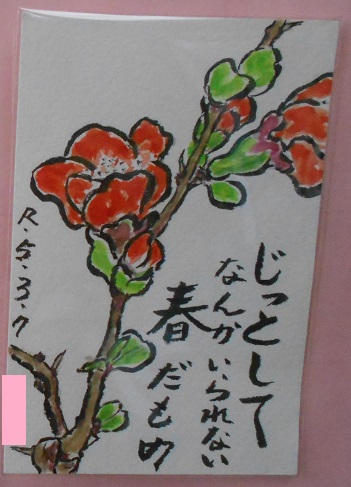 じっとして
なんか
いられない
春だもの
R.5.3.7